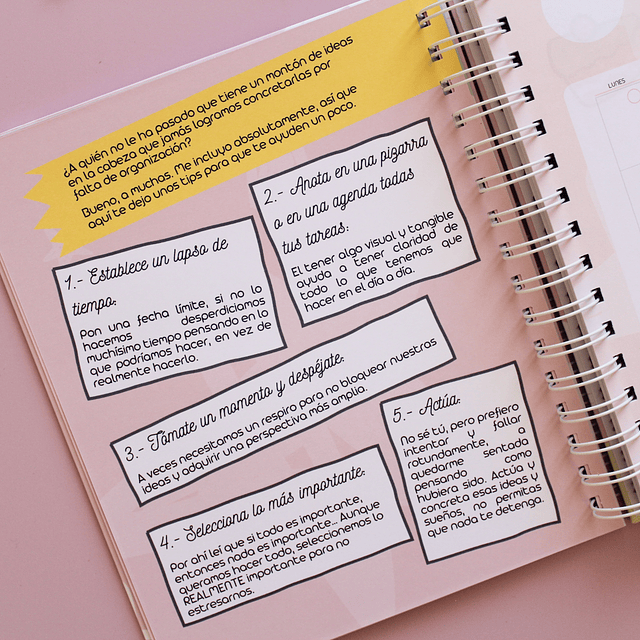 ¿A quién no le ha pasado que tiene un montón de ideas
en la cabeza que jamás logramos concretarlas por
falta de organización?
Bueno, a muchas. Me incluyo absolutamente, así que
aquí te dejo unos tips para que te ayuden un poco.
1.- Establece un lapso de
tiempo:
Pon una fecha límite, si no lo
hacemos desperdiciamos
muchísimo tiempo pensando en lo
que podríamos hacer, en vez de
realmente hacerlo.
2.- Anota en una pizarra
o en una agenda todas
tus tareas:
El tener algo visual y tangible
ayuda a tener claridad de
todo lo que tenemos que
hacer en el día a día.
3.- Tómate un momento y despéjate:
A veces necesitamos un respiro para no bloquear nuestras
ideas y adquirir una perspectiva más amplia.
4.- Selecciona lo más importante:
Por ahí leí que si todo es importante,
entonces nada es importante... Aunque
queramos hacer todo, seleccionemos lo
REALMENTE importante para no
estresarnos.
5.- Actúa:
No sé tú, pero prefiero
intentar y fallar
rotundamente, a
quedarme sentada
pensando como
hubiera sido. Actúa y
concreta esas ideas y
sueños, no permitas
que nada te detenga.
LUNES